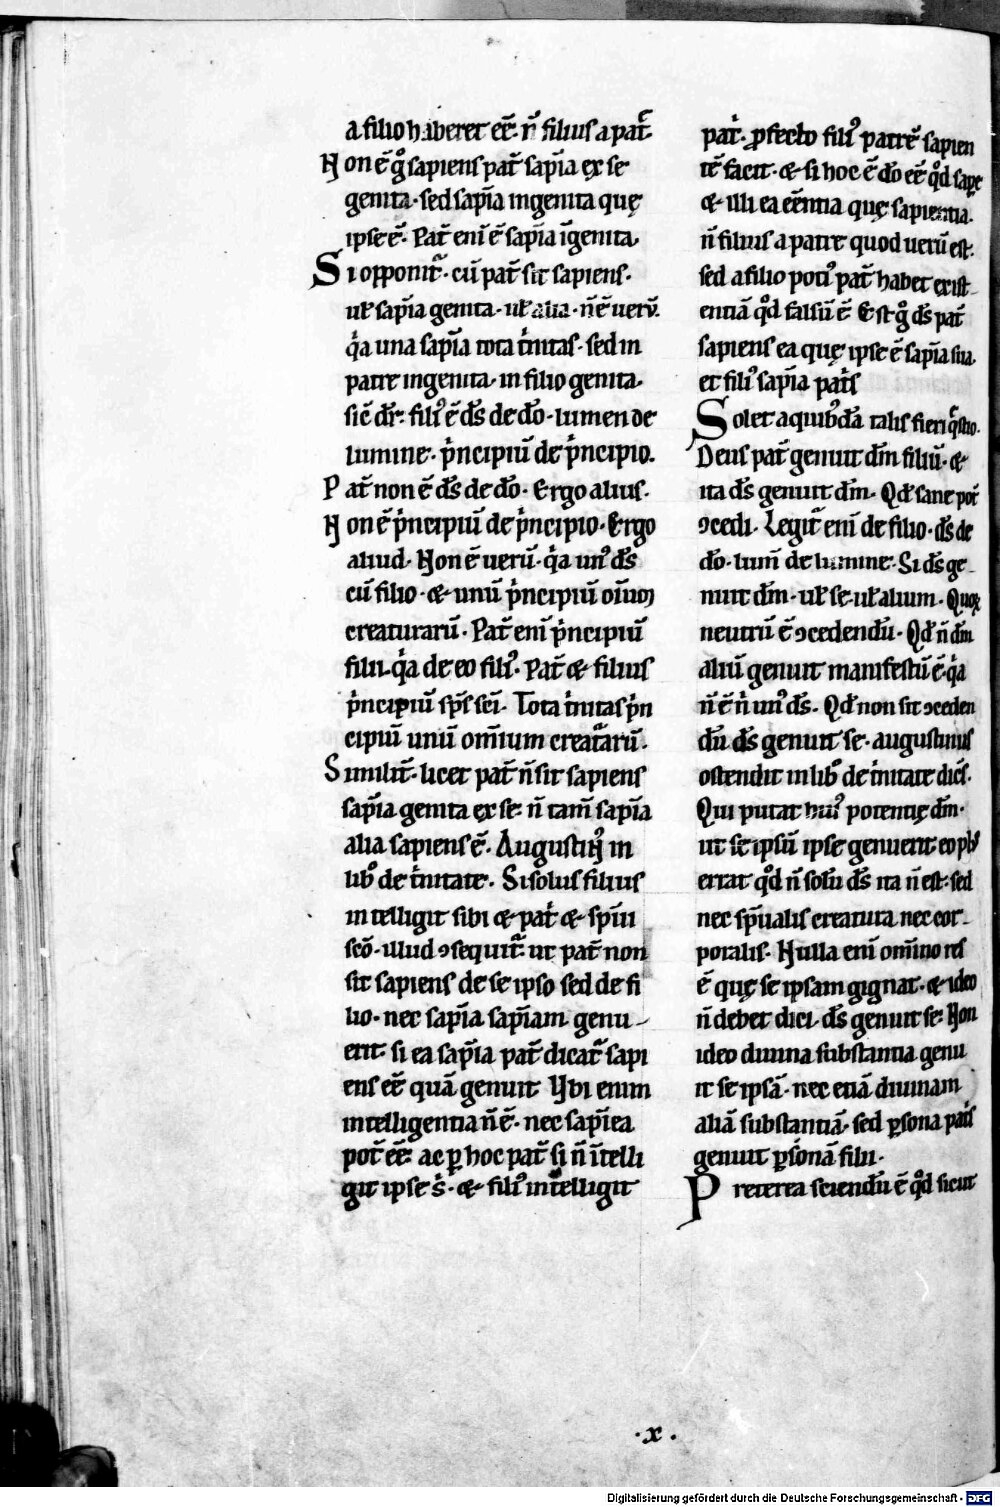 a filio haberet eē. n̄ filius a pat̄.
Non ē gͦ sapiens pat̄ sap̄ia ex se
genita. sed sap̄ia ingenita quę
ipse ē. Pat̄ eni ē sap̄ia īgenita.
Si opponit᷑. cū pat̄ sit sapiens.
ut̄ sap̄ia genita. ut̄ alia. n̄ ē verū.
qͥa una sap̄ia tota tͥnitas. sed in
patre ingenita. in filio genita.
sic̄ dr̄. filiꝰ ē d̄s de d̄o. lumen de
lumine. pͥncipiū de pͥncipio.
Pat̄ non ē d̄s de d̄o. Ergo alius.
Non ē pͥncipiū de pͥncipio. Ergo
aliud. Non ē verū. qͥa unꝰ d̄s
cū filio. & unū pͥncipiū oīuꝫ
creaturarū. Pat̄ eni pͥncipiū
filii. qͥa de eo filiꝰ. Pat̄ & filius
pͥncipiū sp̄s sc̄i. Tota tͥnitas pͥn
cipiū unū om̄ium creaᷓtarū.
Similit̄. licet pat̄ n̄ sit sapiens
sap̄ia genita ex se. n̄ tam̄ sap̄ia
alia sapiens ē. Augustinꝰ in
libͦ de tͥnitate. Si solus filius
intelligit sibi & patͥ & sp̄iu
sc̄o. illud ꝯsequit᷑. ut pat̄ non
sit sapiens de se ipso sed de fi
lio. nec sap̄ia sap̄iam genu-
erit. si ea sap̄ia pat̄ dicat᷑ sapi
ens eē quā genuit Ubi enim
intelligentia n̄ ē. nec sap̄iea
pot̄ eē. ac ꝑ hoc pat̄ si n̄ ītelli
git ipse s̄. & filiꝰ intelligit
patͥ. ꝓfecto filiꝰ patrē sapien
tē facit. & si hoc ē d̄o eē qͦd sapͤe
& illi ea eēntia quę sapientia.
n̄ filius a patre quod verū est.
sed a filio potiꝰ pat̄ habet exist-
entiā qͦd falsū ē Est gͦ d̄s pat̄
sapiens ea quę ipse ē sap̄ia sua.
et filiꝰ sap̄ia patͥs
Solet a quibꝰdā talis fieri qͥstio.
Deus pat̄ genuit d̄m filiū. &
ita d̄s genuit d̄m. Qd̄ sane pot̄
ꝯcedi. Legit᷑ eni de filio. d̄s de
d̄o. lum̄ de lumine. Si d̄s ge-
nuit d̄m. ut̄ se. ut̄ alium. Quoꝝ
neutrū ē ꝯcedendū. Qd̄ n̄ d̄m
aliū genuit manifestū ē. qͥa
n̄ ē nͥ unꝰ d̄s. Qd̄ non sit ꝯceden
dū d̄s genuit se. augustinus
ostendit in libͦ de tͥnitate dic̄s.
Qui putat huiꝰ potentię d̄m.
ut se ipsū ipse genuerit eo plꝰ
errat qͦd n̄ solū d̄s ita n̄ est. sed
nec sp̄ualis creatura nec cor-
poralis. Nulla eni om̄ino res
ē quę se ipsam gignat. & ideo
n̄ debet dici. d̄s genuit se. Non
ideo divina substantia genu
it se ipsā. nec etiā divinam
aliā substantiā. sed ꝑsona patͥs
genuit ꝑsonā filii.
Preterea sciendū ē qͦd sicut
.x.
Digitalisierung gefördert durch die Deutsche Forschungsgemeinschaft - DFG